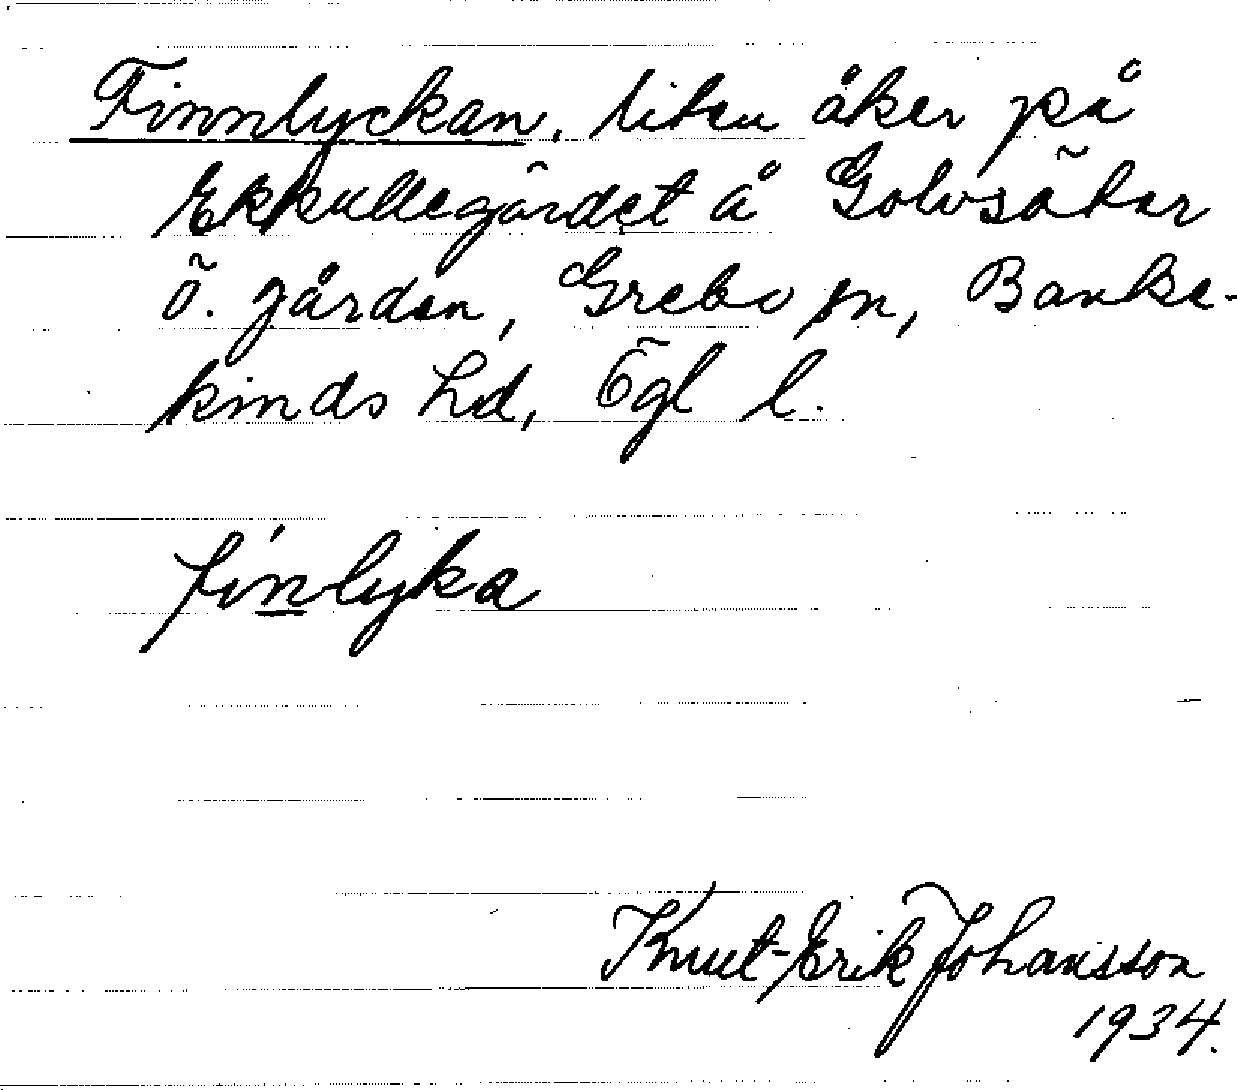 Finnlyckan, liten åker på
Ekkullegärdet å Golvsäter
Ö. gården, Grebo sn, Banke-
kinds hd, Ögl l.
finlyka
Knut-Erik Johansson
1934.